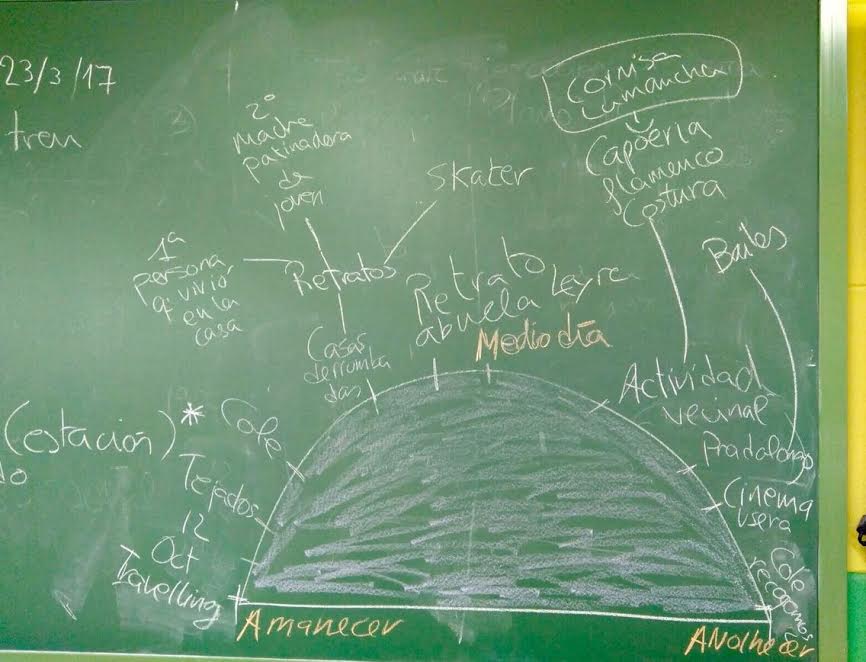 23/3/17
tren
2º
madre
patinadora
de
joven
Skater
1ª
persona
q' vivió
en la
casa
Retratos
Casas
derrumba
das
Retrato
abuela Leyre
Mediodía
Cornisa
Capoeria
flamenco
Costura
Bailes
Actividad
vecinal
Pradolongo
Cinema
Usera
Cole
recogemos
(estación) *
do
Cole
Tejados
12
Oct
Travelling
Amanecer
ANoLhecer